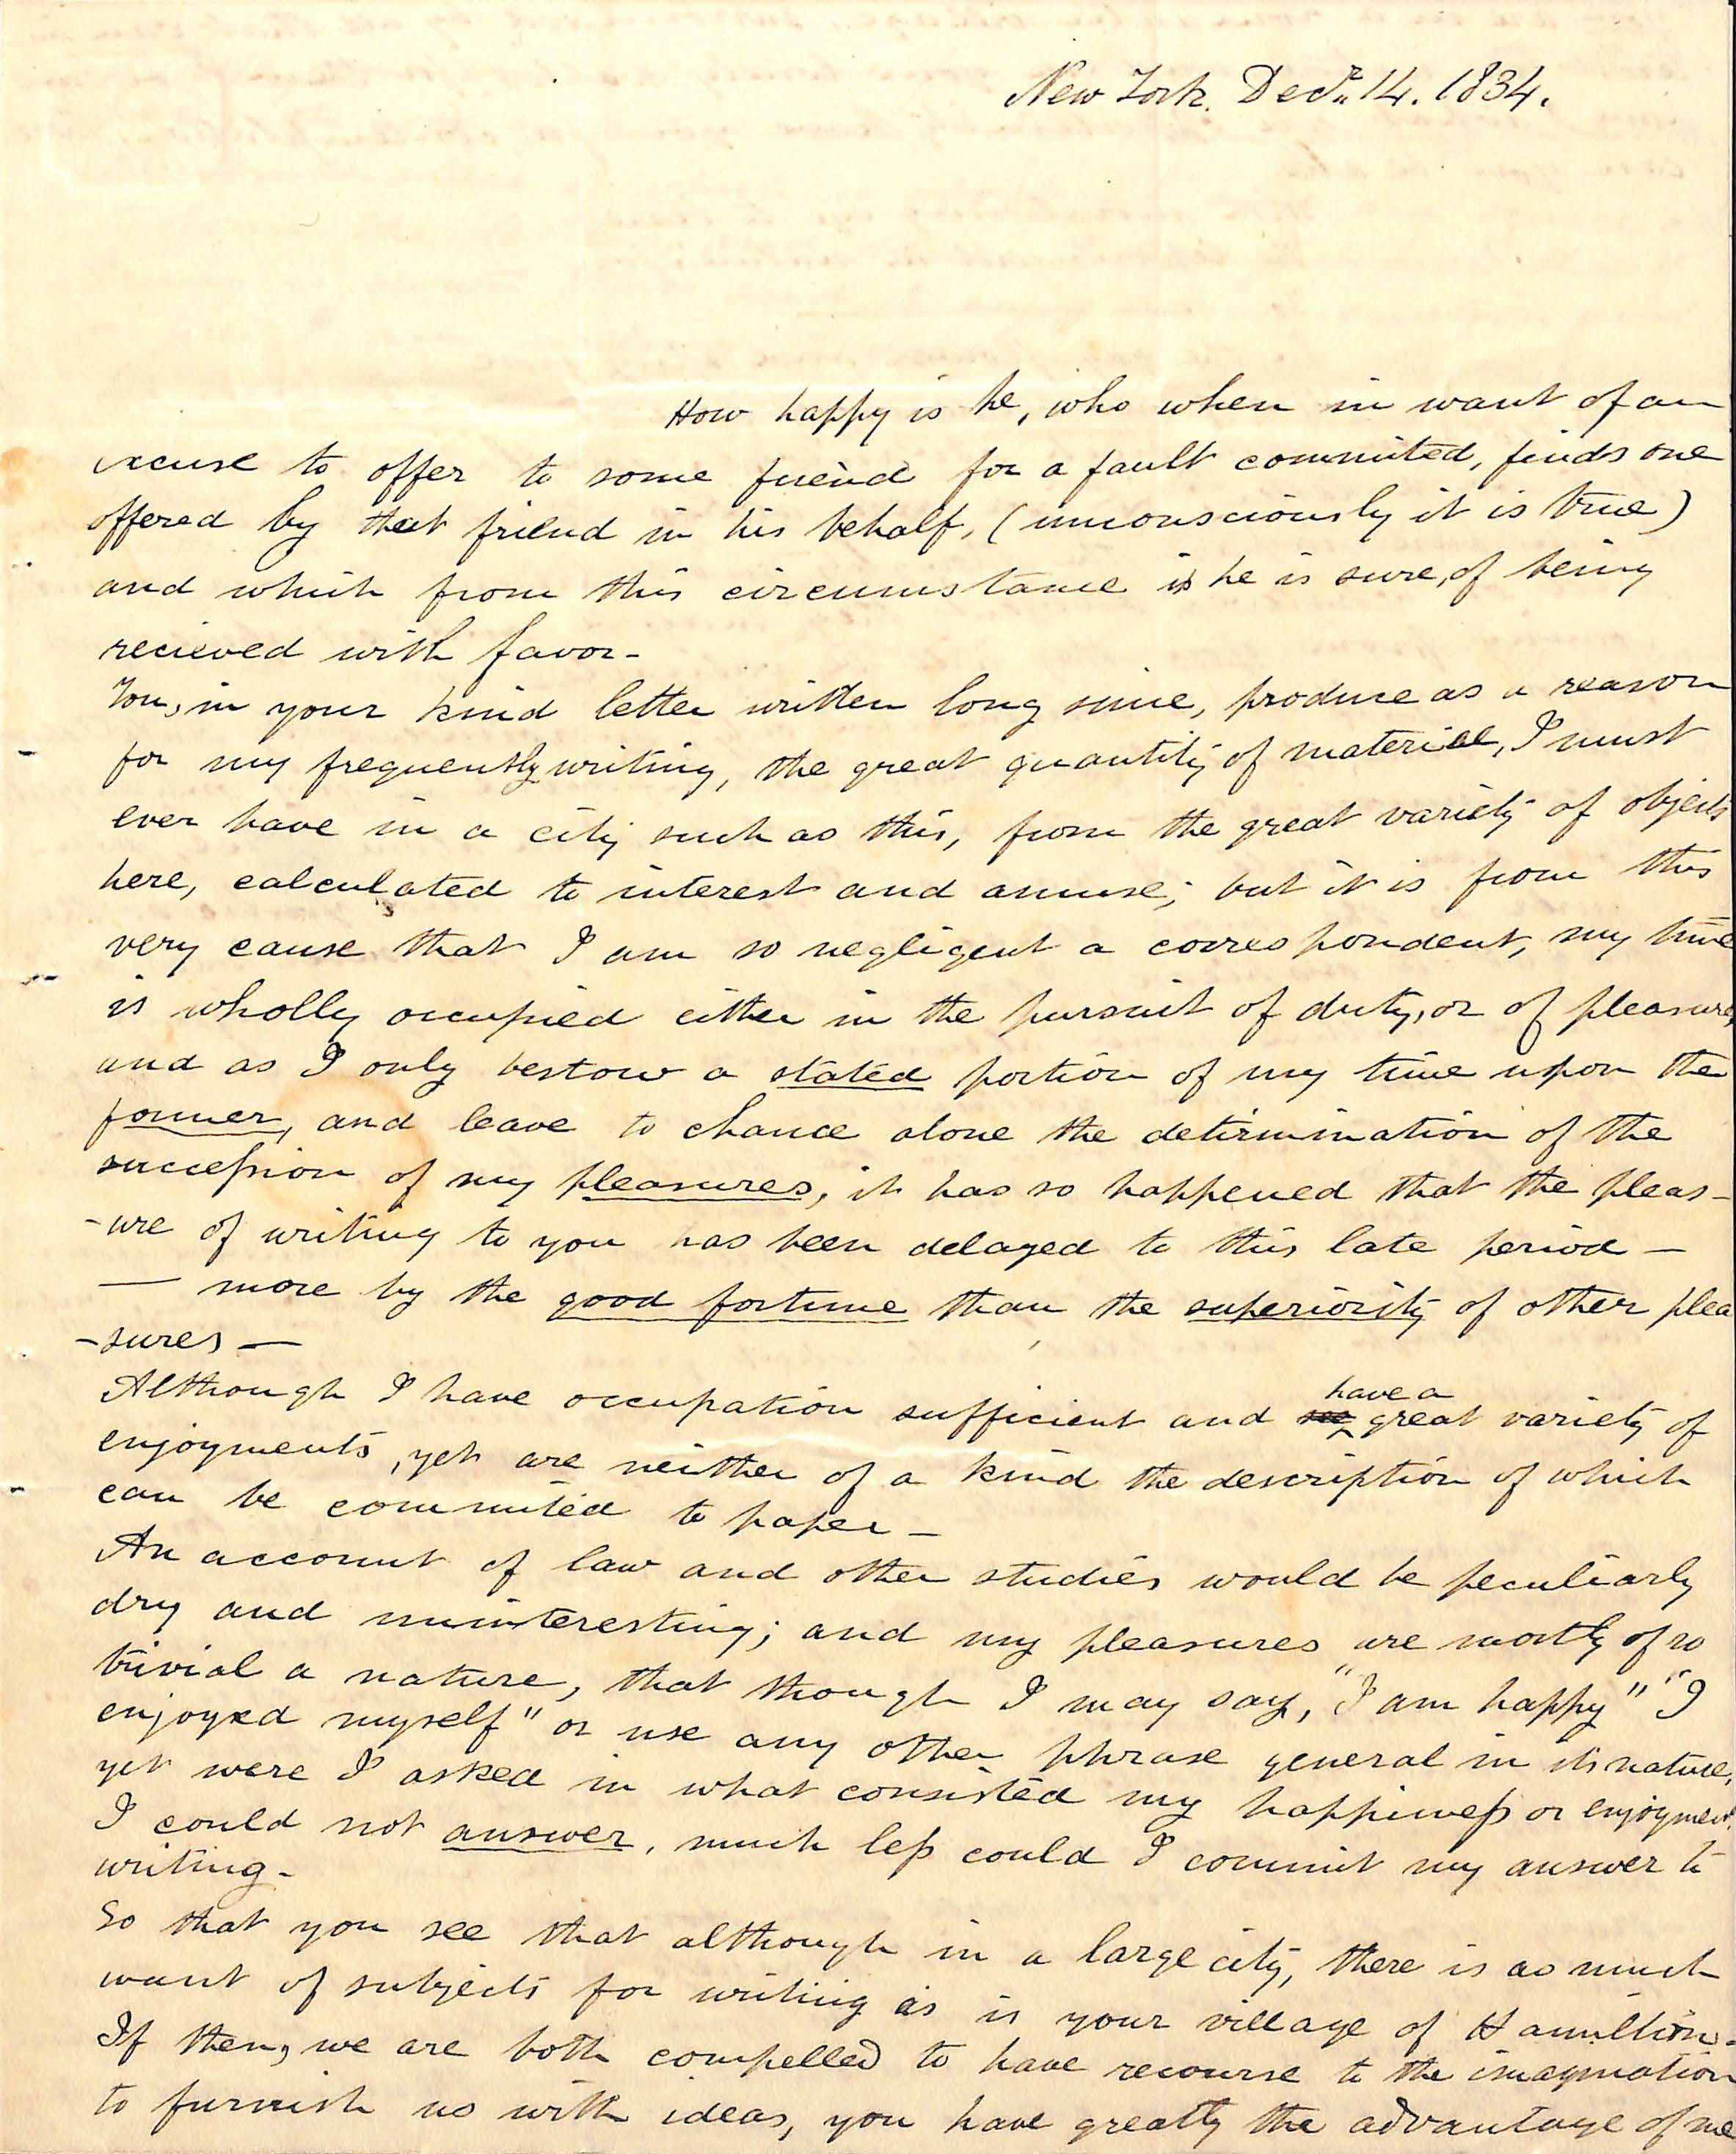 New York. Decr. 14. 1834.
How happy is he, who when in want of an
excuse to offer to some friend for a fault commited, finds one
offered by that friend in his behalf, (unconsciously it is true)
and which from this circumstance is he is sure, of being
recieved with favor-
You, in your kind letter written long since, produce as a reason
for my frequently writing, the great quantity of material, I must
ever have in a city such as this, from the great variety of objects
here, calculated to interest and amuse; but it is from this
very cause that I am so negligent a correspondent, my time
is wholly occupied either in the pursuit of duty, or of pleasure,
and as I only bestow a stated portion of my time upon the
former, and leave to chance alone the determination of the
succession of my pleasures, it has so happened that the pleas-
-ure of writing to you has been delayed to this late period —
— more by the good fortune than the superiority of other plea
-sures —
Although I have occupation sufficient and have a great variety of
enjoyments, yet are neither of a kind the description of which
can be commited to paper —
An account of law and other studies would be peculiarly
dry and uninteresting; and my pleasures are mostly of so
trivial a nature, that though I may say, "I am happy" "I
enjoyed myself" or use any other phrase general in its nature,
yet were I asked in what consisted my happiness or enjoyment,
I could not answer, much less could I commit my answer to
writing-
So that you see that although in a large city, there is as much
want of subjects for writing as in your village of Hamilton-
If then, we are both compelled to have recourse to the imagination
to furnish us with ideas, you have greatly the advantage of me